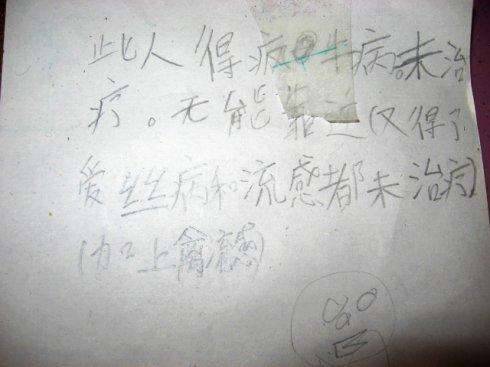 此人得疯牛病。未治
疗。无能靠近(又得了
爱丝病和流感都未治疗)
(加上禽流感)